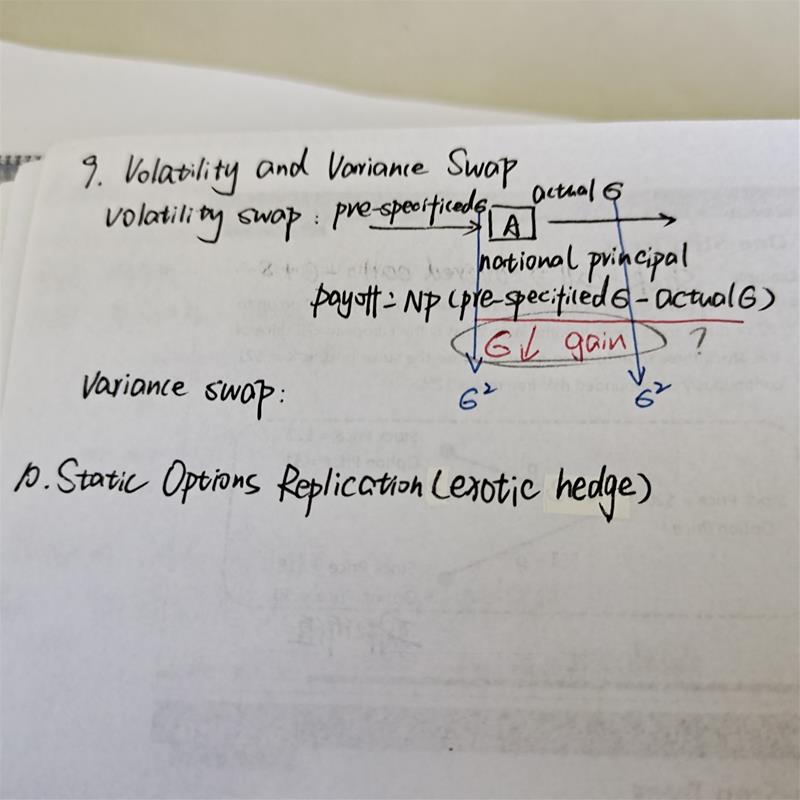 9. Volatility and Variance Swap
actual 6
volatility swap : pre-specificed6
A
national principal
payoff = NP (pre-specifiled 6 - actual 6)
6↓ gain ?
Variance swap:
6² 6²
10. Static Options Replication (exotic hedge)